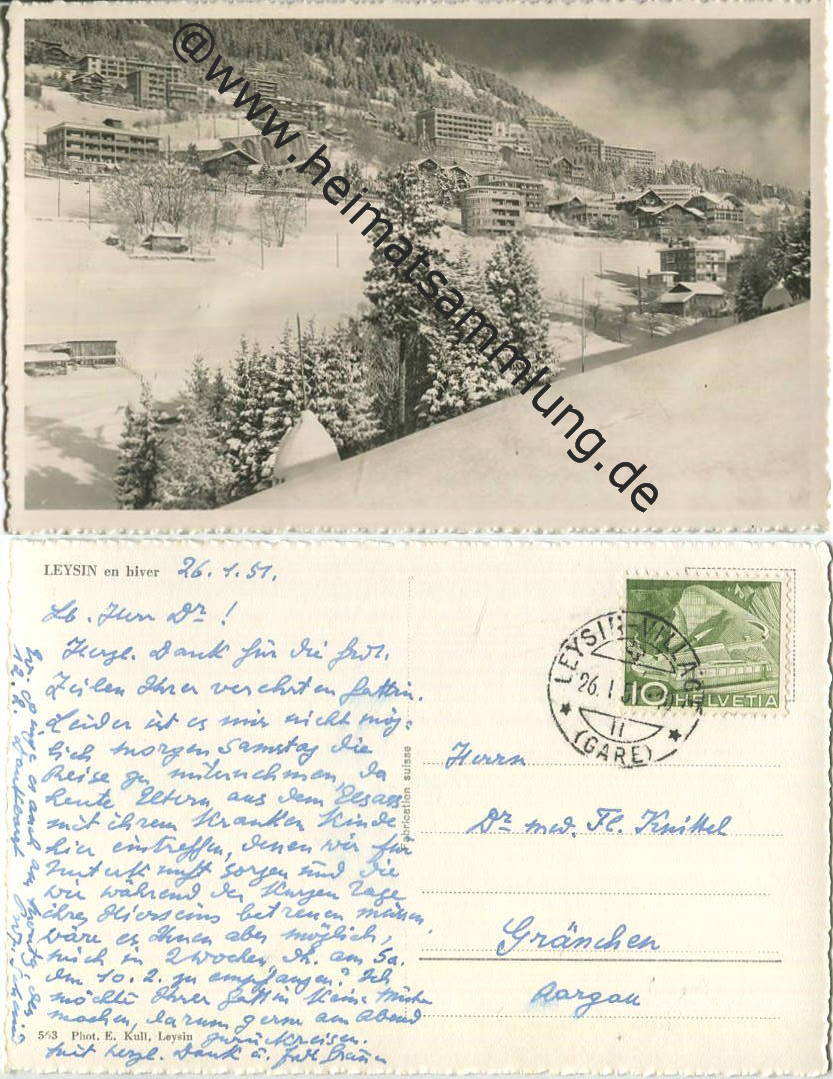 @www.heimatsammlung.de
LEYSIN en hiver 26.1.51.
Lb. Herr Dr!
Herzl. Dank für die frdl.
Zeilen Ihrer verehrten Gattin.
Leider ist es mir nicht mög-
lich morgen Samstag die
Reise zu unternehmen, da
heute Eltern aus dem Elsass
mit ihrem kranken Kinde
hier eintreffen, denen wir für
Unterkunft sorgen und die
wir während der kurzen Tage
ihres Hierseins betreuen müssen.
wäre es Ihnen aber möglich,
mich in 2 Wochen dh. am Sa.
dem 10.2. zu empfangen? Ich
möchte Ihrer Gattin keine Mühe
machen, darum gerne am Abend
zurückreisen.
Mit herzl. Dank u. frdl. Grüssen
es auch am Montag den
12.2.
563 Phot. E. Kull, Leysin
Fabrication suisse
LEYSIN-VILLAGE
26.1.51
(GARE)
10 HELVETIA
Herrn
Dr med. Fl. Knittel
Gränchen
Aargau